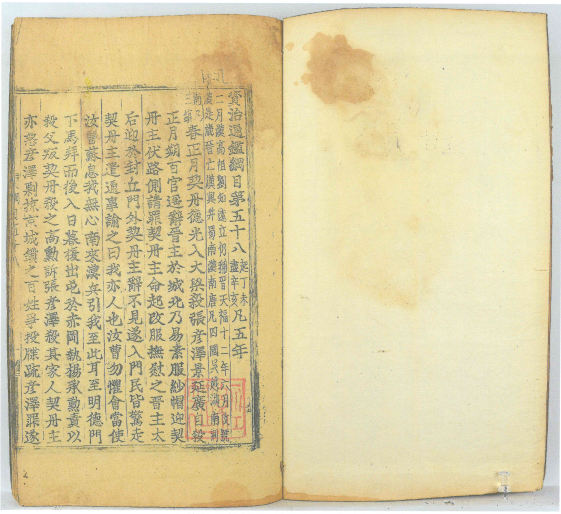 資治通鑑綱目第五十八 起丁未盡辛亥凡五年
二月漢高祖劉知遠立仍稱晉天福十二年六月改號
漢是歲晉亡漢興并蜀南漢南唐凡四國吳越湖南荊
南凡三鎮
春正月契丹德光入大梁殺張彦澤景延廣自殺
正月朔百官遙辭晉主於城北乃易素服紗帽迎契
丹主伏路側請罪契丹主命起改服撫慰之晉主太
后迎於封丘門外契丹主辭不見遂入門民皆驚走
契丹主遣通事諭之曰我亦人也汝曹勿懼會當使
汝曹蘇息我無心南來漢兵引我至此耳至明德門
下馬拜而後入日暮復出屯於赤岡執楊承勳責以
殺父叛契丹殺之高勳訴張彦澤殺其家人契丹主
亦怒彦澤剽掠京城鎖之百姓爭投牒疏彦澤罪遂